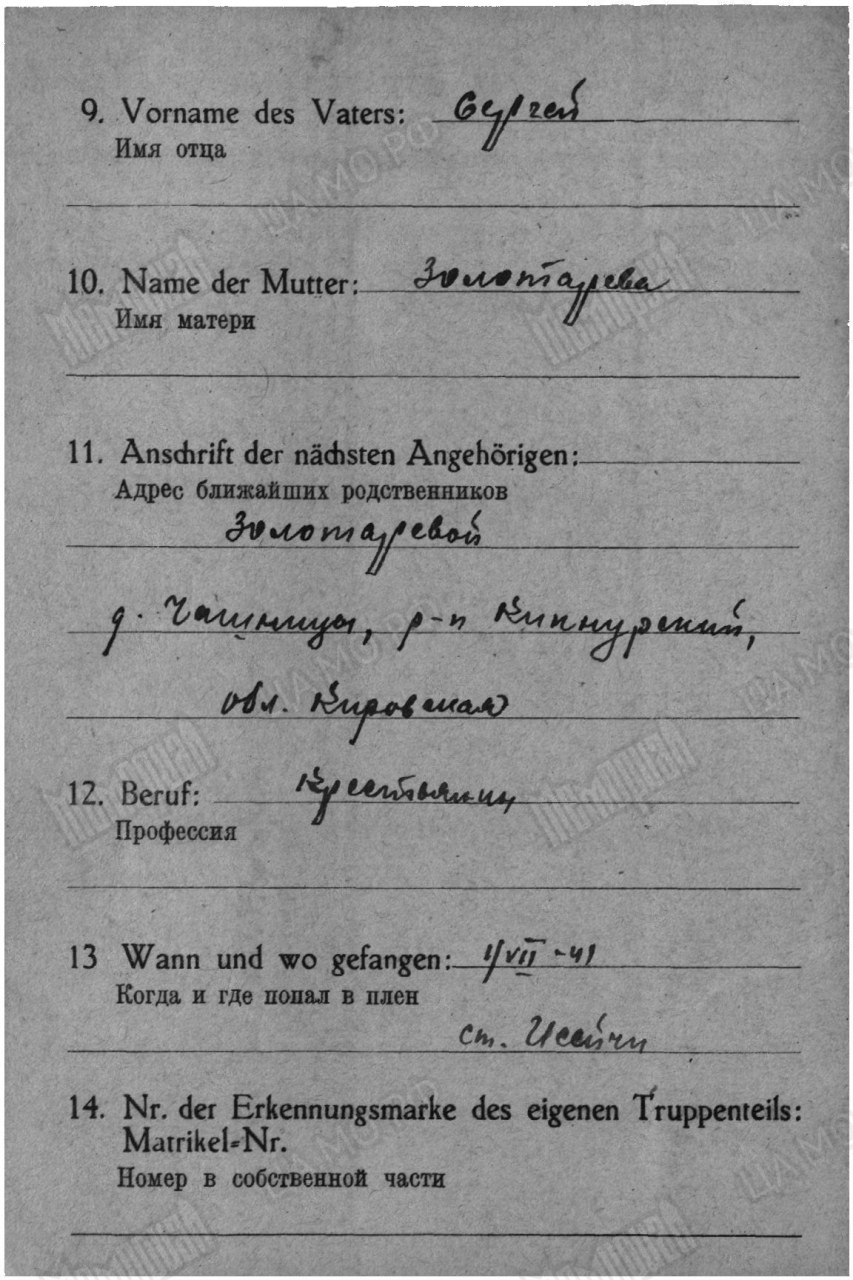 9. Vorname des Vaters: Сергей
Имя отца
10. Name der Mutter: Золотарева
Имя матери
11. Anschrift der nächsten Angehörigen:
Адрес ближайших родственников
Золотаревой
д. Чашницы, р-н Кикнурский,
обл. Кировская
12. Beruf: Крестьянин
Профессия
13 Wann und wo gefangen: 1/VII-41
Когда и где попал в плен
ст.
14. Nr. der Erkennungsmarke des eigenen Truppenteils:
Matrikel-Nr.
Номер в собственной части